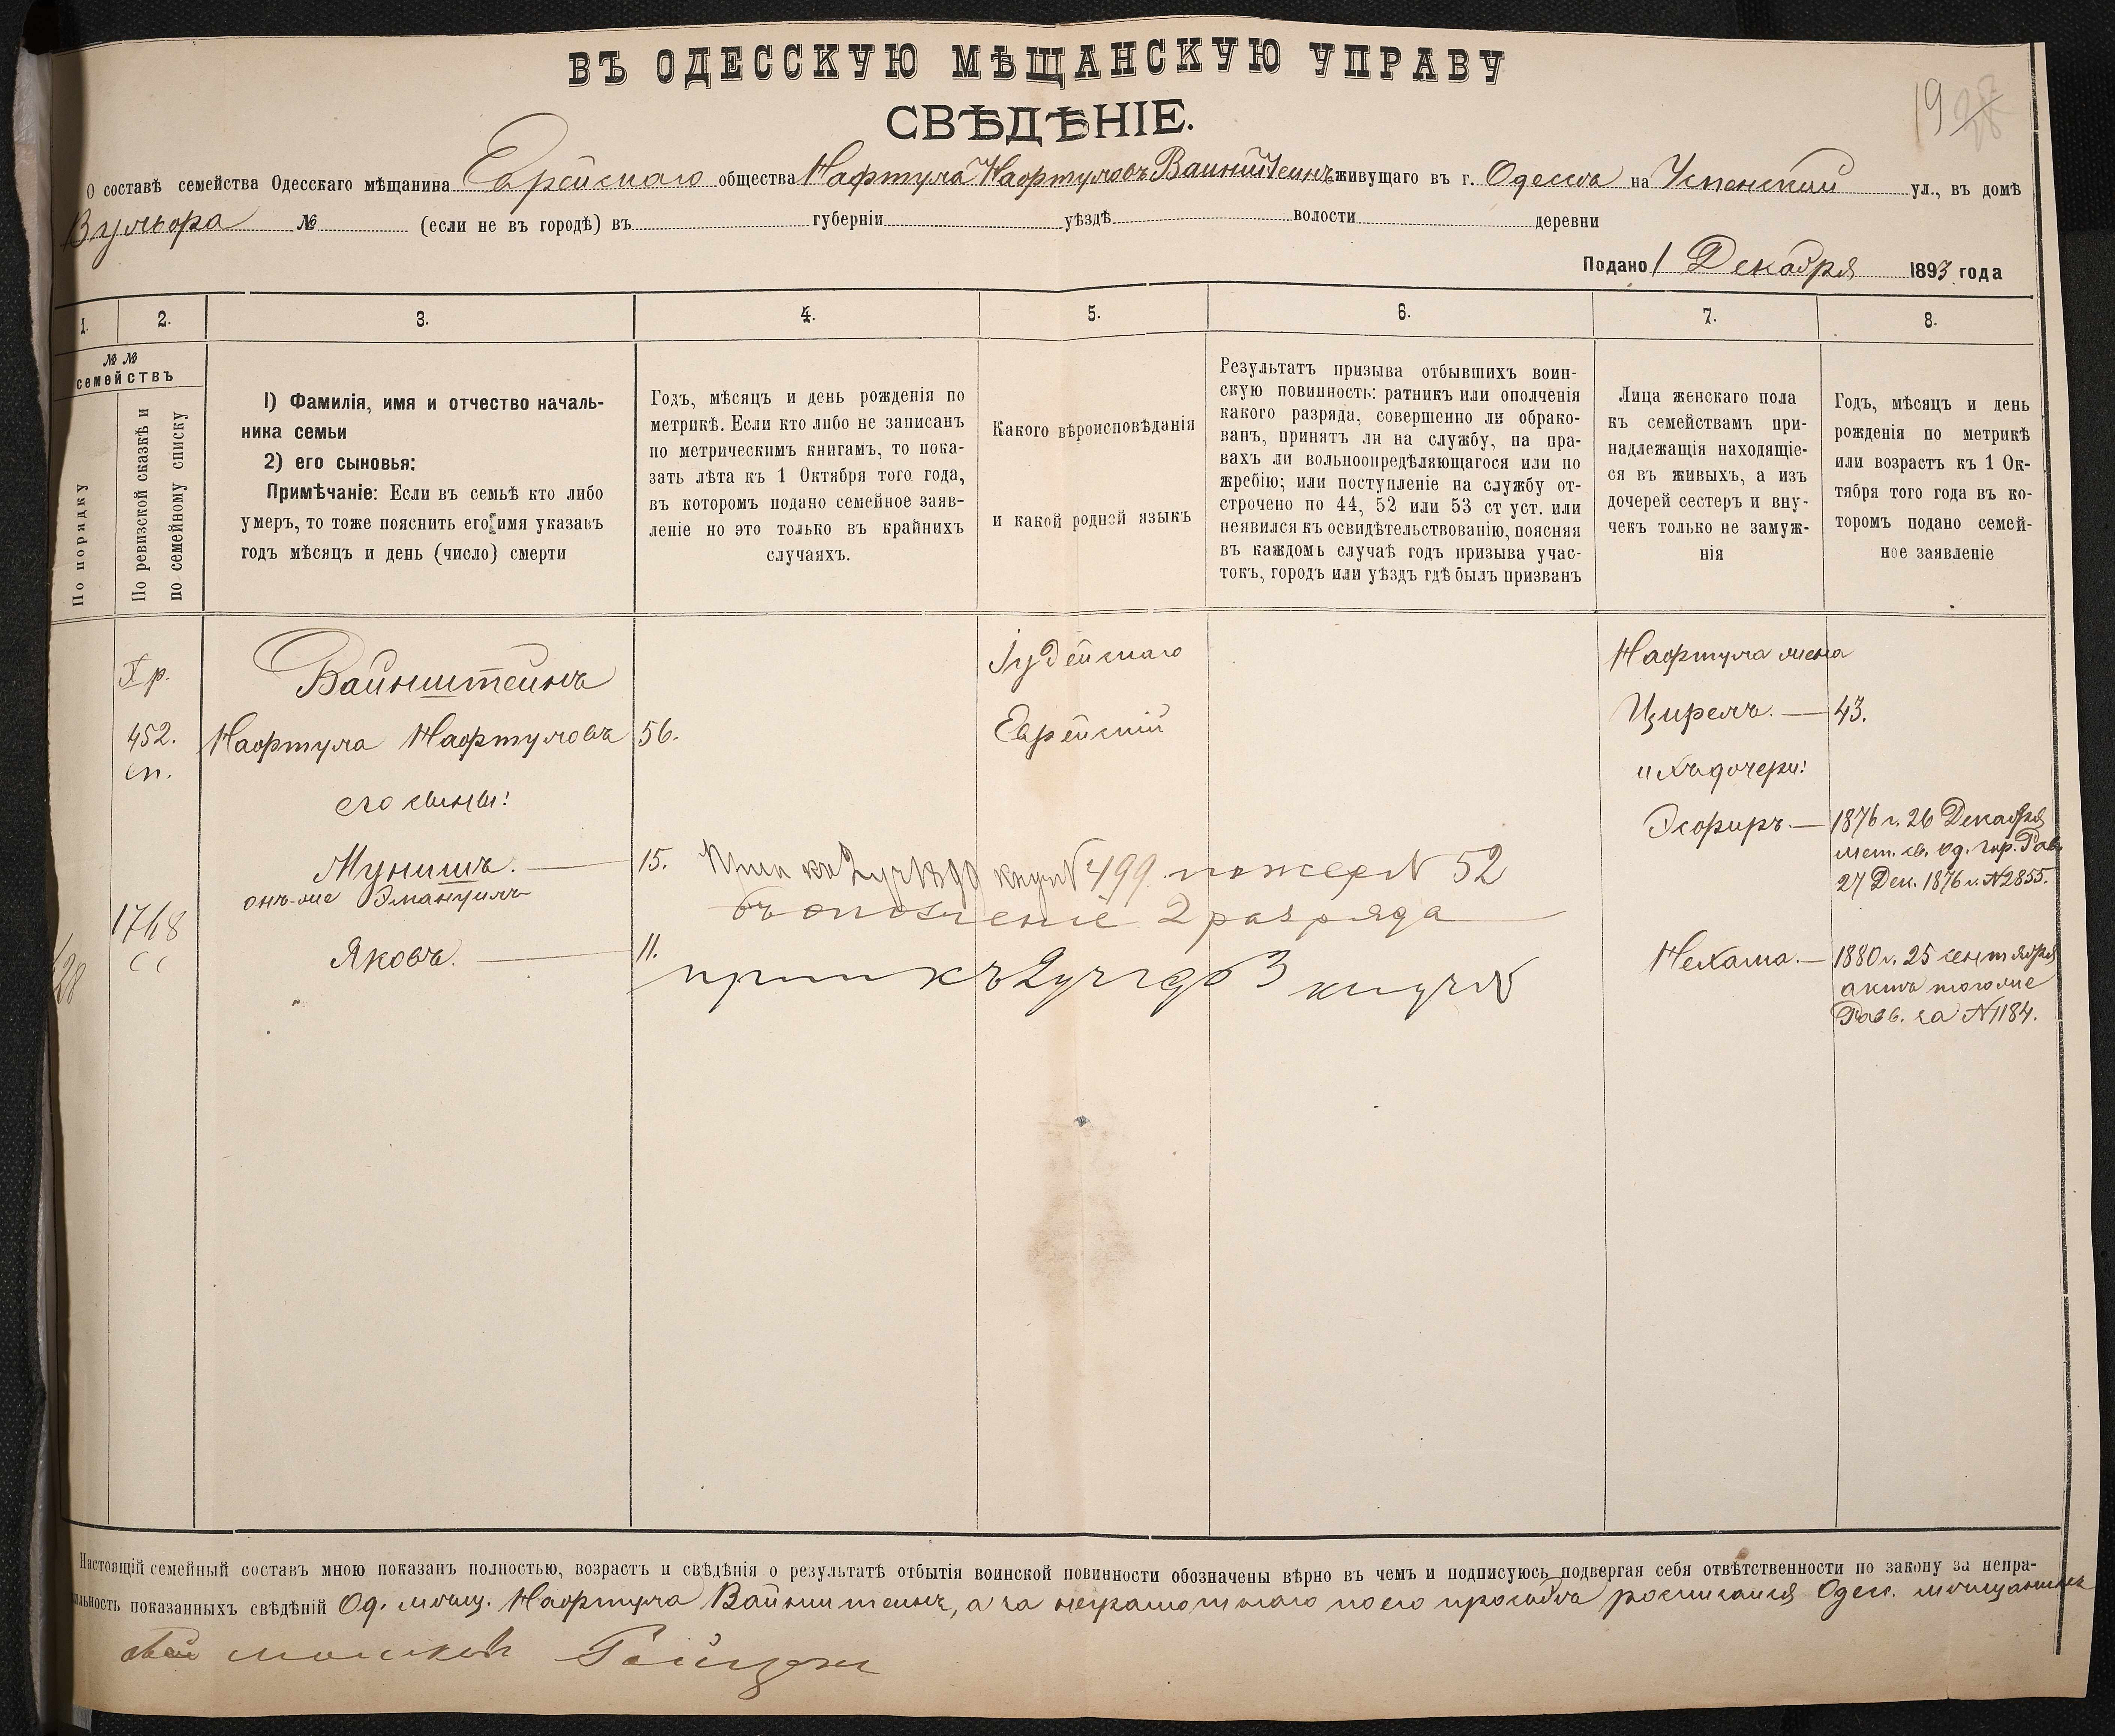 19 28
ВЪ ОДЕССКУЮ МѢЩАНСКУЮ УПРАВУ
СВѢДѢНІЕ.
О составѣ семейства Одесскаго мѣщанина Еврейскаго общества Нафтула Нафтуловъ Вайнштейнъ живущаго въ г. Одессѣ на Успенской ул., въ домѣ
Вульфора № (если не въ городѣ) въ губерніи уѣздѣ волости деревни
Подано 1 Декабря 1893 года
1. 2. 3. 4. 5. 6. 7. 8.
№ №
семействъ
По порядку
По ревизской сказкѣ и
по семейному списку
1) Фамилія, имя и отчество началь-
ника семьи
2) его сыновья:
Примѣчаніе: Если въ семьѣ кто либо
умеръ, то тоже пояснить его имя указавъ
годъ мѣсяцъ и день (число) смерти
Годъ, мѣсяцъ и день рожденія по
метрикѣ. Если кто либо не записанъ
по метрическимъ книгамъ, то пока-
зать лѣта къ 1 Октября того года,
въ которомъ подано семейное заяв-
леніе но это только въ крайнихъ
случаяхъ.
Какого вѣроисповѣданія
и какой родной языкъ
Результатъ призыва отбывшихъ воин-
скую повинность: ратникъ или ополченія
какого разряда, совершенно ли обрако-
ванъ, принятъ ли на службу, на пра-
вахъ ли вольноопредѣляющагося или по
жребію; или поступленіе на службу от-
строчено по 44, 52 или 53 ст уст. или
неявился къ освидѣтельствованію, поясняя
въ каждомъ случаѣ годъ призыва учас-
токъ, городъ или уѣздъ гдѣ былъ призванъ
Лица женскаго пола
къ семействамъ при-
надлежащія находящіе-
ся въ живыхъ, а изъ
дочерей сестеръ и вну-
чекъ только не замуж-
нія
Годъ, мѣсяцъ и день
рожденія по метрикѣ
или возрастъ къ 1 Ок-
тября того года въ ко-
торомъ подано семей-
ное заявленіе
X р. Вайнштейнъ Іудейскаго Нафтула жена
452. Нафтула Нафтуловъ 56. Еврейскій Цирель. — 43.
сп. ихъ дочери:
его сыны: Эсфирь. — 1876 г. 26 Декабря
мет. св. Од. гор. Рав.
27 Дек. 1876 г. №2855.
Мунишъ. — 15. къ 2 уч 499 по жер № 52
онъ-же Эмануилъ въ ополченіе 2 разряда
1768
128
Яковъ. — 11. къ 2 уч
Нехама. — 1880 г. 25 сентября
актъ того же
Равв. за №1184.
Настоящій семейный составъ мною показанъ полностью, возрастъ и свѣдѣнія о результатѣ отбытія воинской повинности обозначены вѣрно въ чемъ и подписуюсь подвергая себя отвѣтственности по закону за непра-
вильность показанныхъ свѣдѣній Од. мѣщ. Нафтула Вайнштейнъ, а за неграмотнаго по его просьбѣ росписался Одес. мѣщанинъ